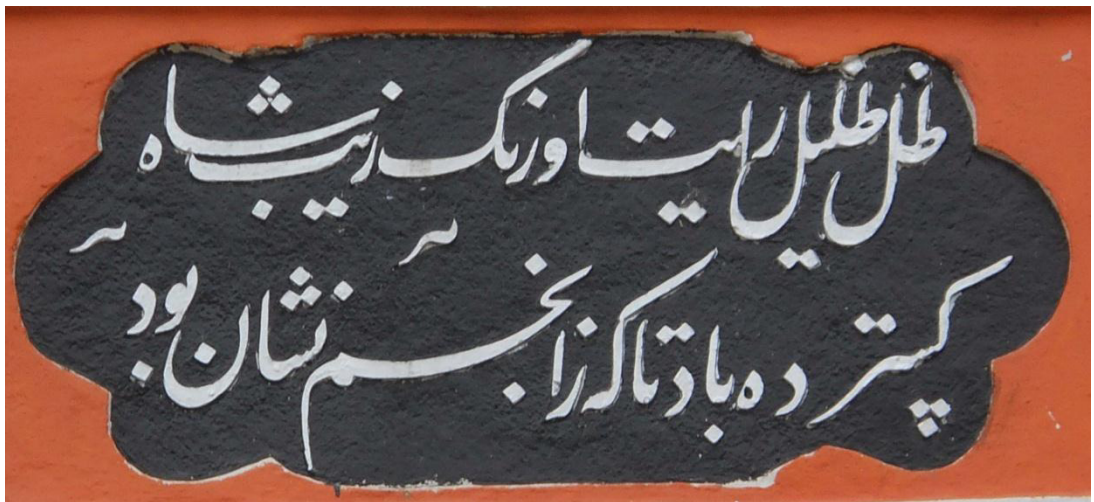 ظل ظلیل رایت اورنگ زیب شاه
گسترده باد تا که ز انجم نشان بود